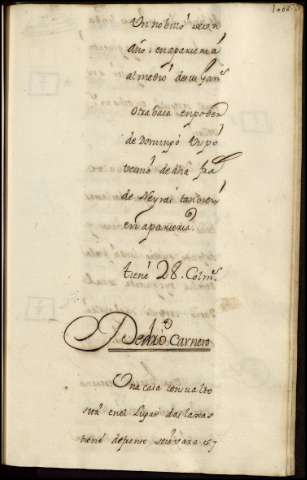 Un nobillo de un
año, en aparcería
al medio
Otra baca en poder
de Domingo
vecino de dha frª
de Neyra, tambien
en aparcería.
tiene 28. Colmˢ
Pedro Carnero
Una casa con su alto
sita en el Lugar das
tiene de frente seis varas y